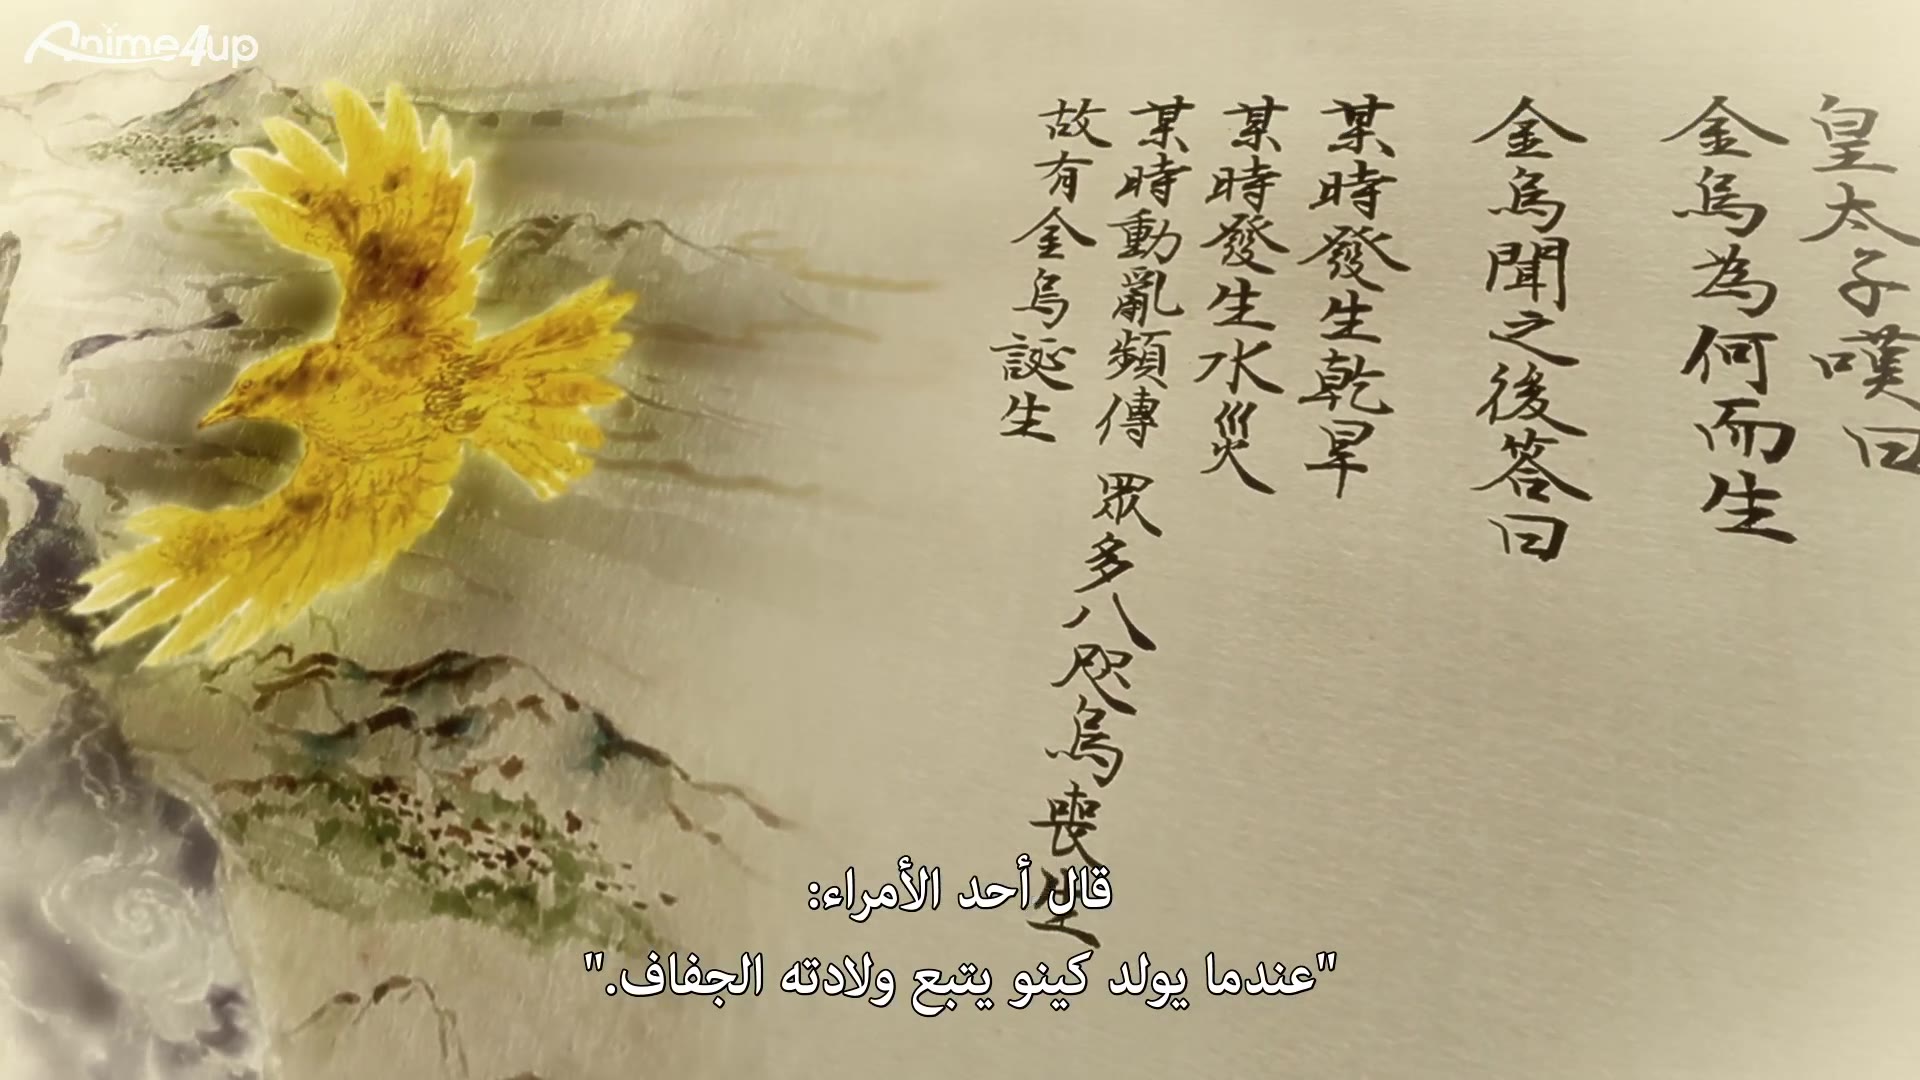 Anime4up
皇太子嘆曰
金烏為何而生
金烏聞之後答曰
某時發生乾旱
某時發生水災
某時動亂頻傳 眾多八咫烏喪生
故有金烏誕生
قال أحد الأمراء:
"عندما يولد كينو يتبع ولادته الجفاف."